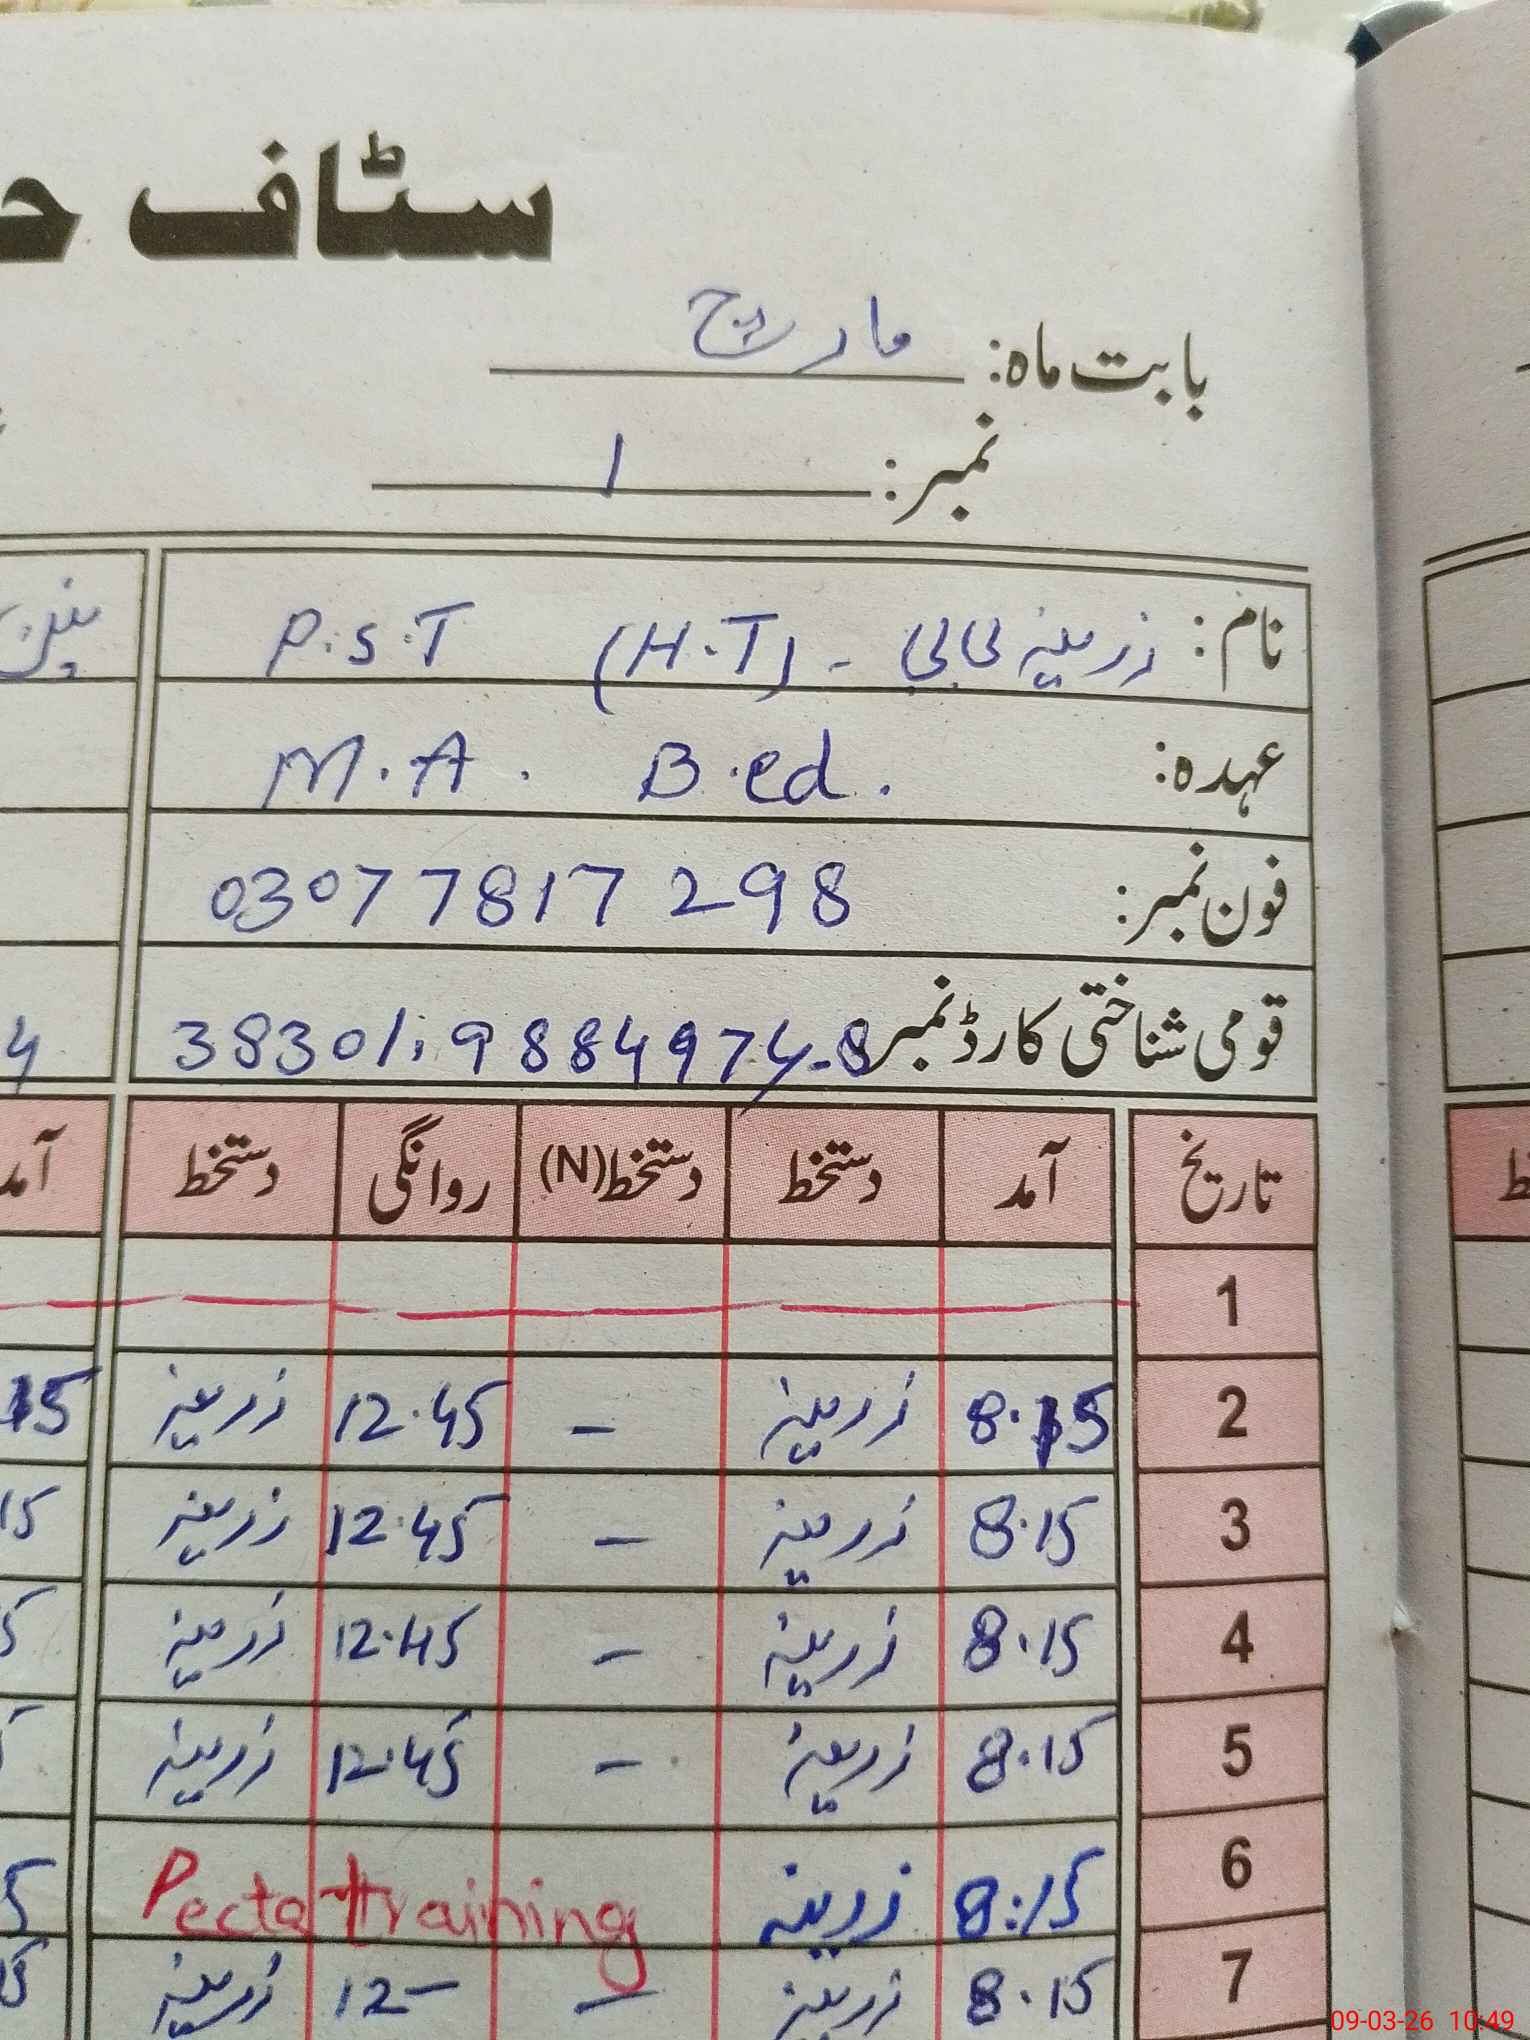 سٹاف
بابت ماہ: مارچ
نمبر: 1
نام: زرینہ بی بی - (H.T) P.S.T
عہدہ: M.A. B.ed.
فون نمبر: 03077817298
قومی شناختی کارڈ نمبر 38301 9884974-8
تاریخ آمد دستخط دستخط(N) روانگی دستخط آمد
1
2 8.15 زرینہ - 12.45 زرینہ 15
3 8.15 زرینہ - 12.45 زرینہ 15
4 8.15 زرینہ - 12.45 زرینہ 5
5 8.15 زرینہ - 12.45 زرینہ
6 8:15 زرینہ Pecta training 5
7 8.15 زرینہ - 12- زرینہ 15
09-03-26 10:49